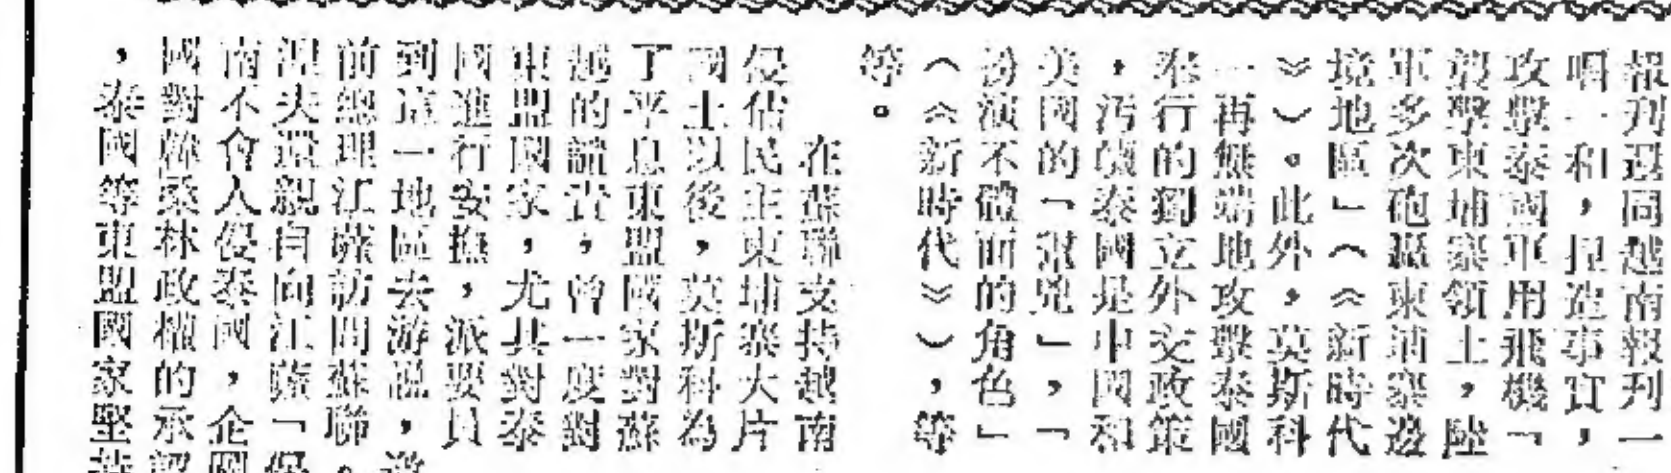 報刊還同越南報刊一
唱一和,捏造事實,
攻擊泰國軍用飛機「
襲擊柬埔寨領土,陸
軍多次砲轟柬埔寨邊
境地區」(《新時代
》)。此外,莫斯科
一再無端地攻擊泰國
奉行的獨立外交政策
,污衊泰國是中國和
美國的「幫兇」,「
扮演不體面的角色」
(《新時代》),等
等。
在蘇聯支持越南
侵佔民主柬埔寨大片
國土以後,莫斯科為
了平息東盟國家對蘇
越的譴責,曾一度對
東盟國家,尤其對泰
國進行安撫,派要員
到這一地區去游説,
前總理江薩訪問蘇聯。
涅夫還親自向江薩「保
南不會入侵泰國,企圖
國對韓桑林政權的承認
,泰國等東盟國家堅